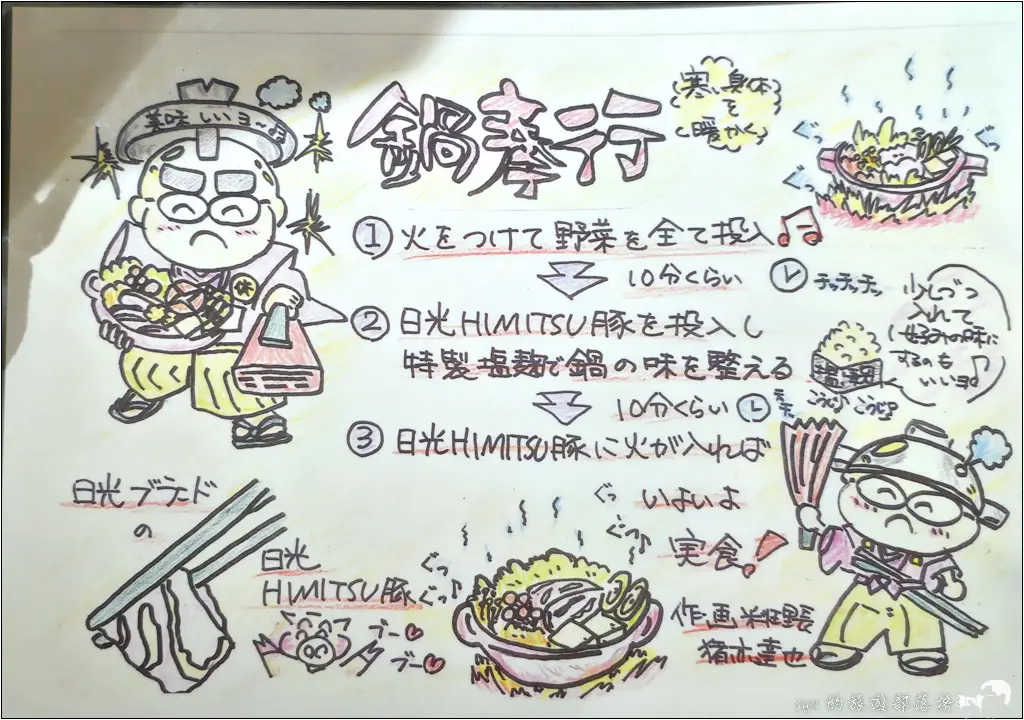 美味しいヨ～♪
鍋奉行
寒い身体
を
暖かく
① 火をつけて野菜を全て投入♫
10分くらい
チッチッチッ
② 日光HIMITSU豚を投入し
特製塩麹で鍋の味を整える
少しづつ
入れて
お好みの味に
するのも
いいヨ♪
塩麹
こうじ♪ こうじ♪
10分くらい
③ 日光HIMITSU豚に火が入れば
いよいよ
実食!
日光ブランド
の
日光
HIMITSU豚
ブー
ブー
ぐっ
ぐつ♪
ぐっ
ぐつ♪
休
作・画 料理長
猪木達也
的旅遊部落格